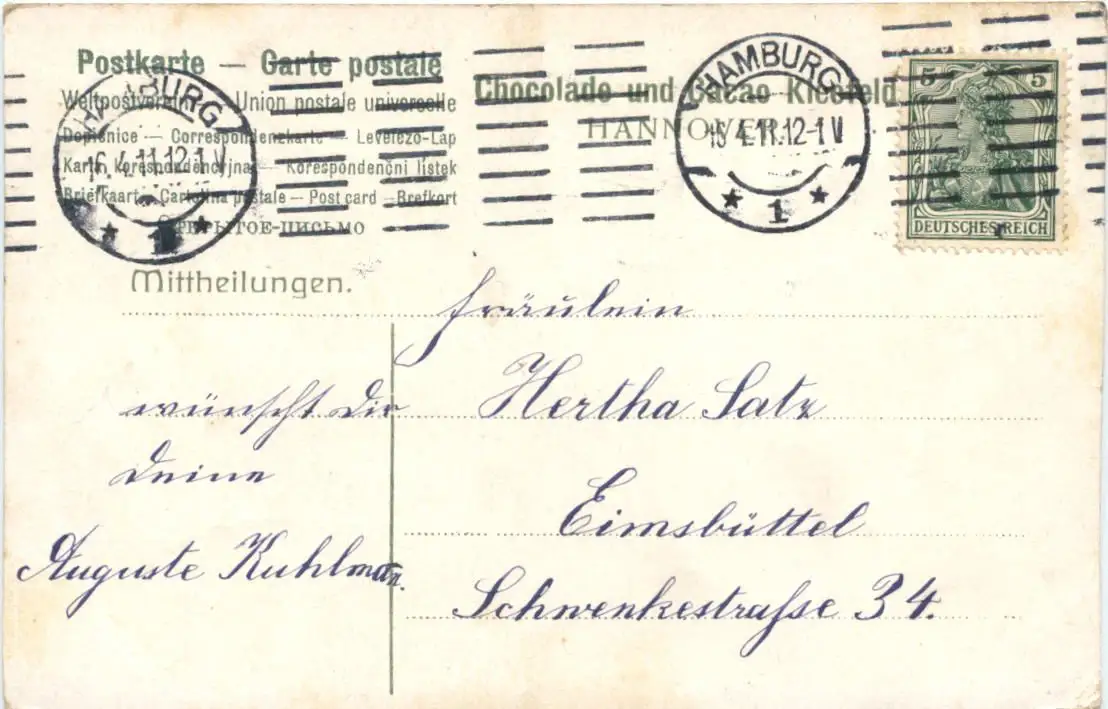 Postkarte — Carte postale
Weltpostverein — Union postale universelle
Dopisnice — Correspondenzkarte — Levelező-Lap
Karta korespondencyjna — Korespondenční lístek
Briefkaart — Cartolina postale — Post card — Brefkort
Открытое-письмо
Chocolade und Cacao Kleefeld
HANNOVER
HAMBURG
16.4.11.12-1 V
★ 1 ★
HAMBURG
16.4.11.12-1 V
★ 1 ★
5 5
DEUTSCHES REICH
Mittheilungen.
Fräulein
Hertha Satz
Eimsbüttel
Schwenkestraße 34.
wünscht Dir
Deine
Auguste Kuhlman.